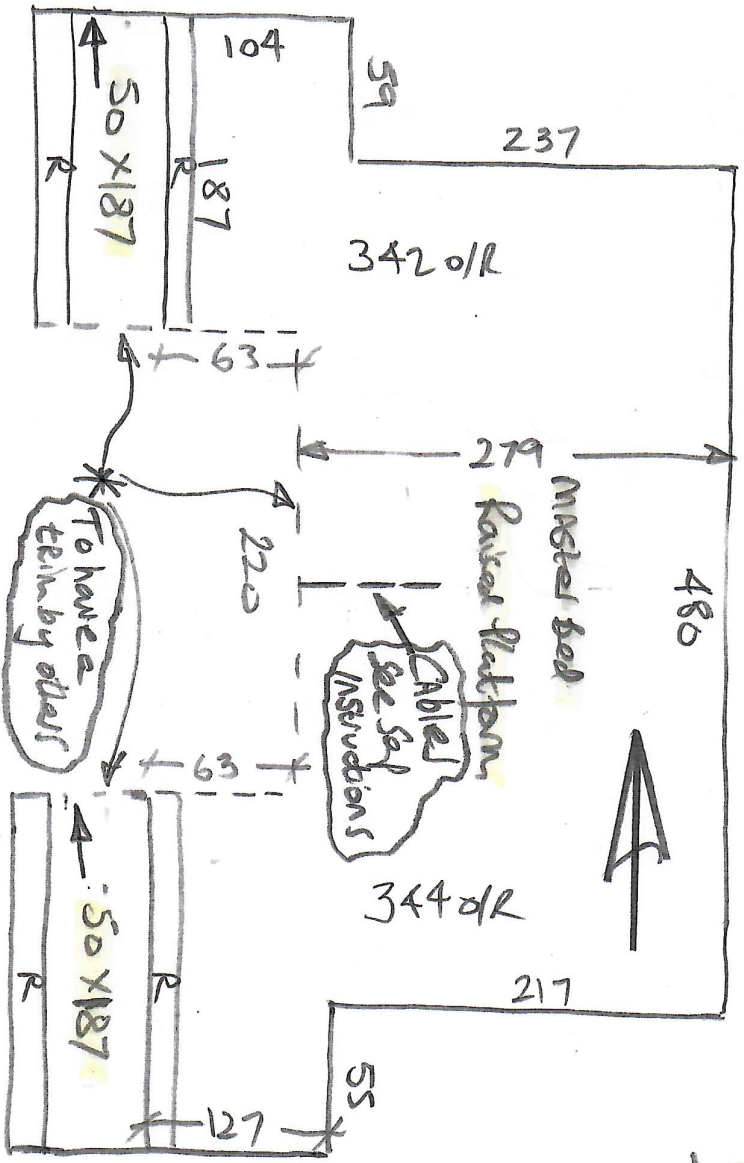 104
59
237
50 X187
R
R
187
342 o/R
63
279
Master Bed
Raised Platform
480
220
To have a
trim by others
CABLES
See Sep
Instructions
63
344 o/R
217
50 X187
R
R
55
127